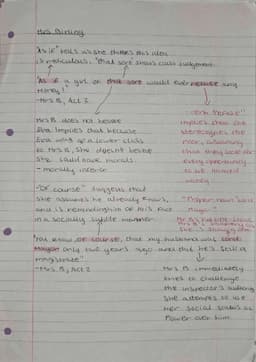 Mrs Birling
"As if" tells us she thinks this idea
is ridiculous. "that sort" shows class judgement.
"As if a girl of that sort would ever refuse any
money!"
- Mrs B, Act 2
Mrs B does not believe
Eva implies that because
Eva was of a lower class
to Mrs B, she doesn't believe
she could have morals
- morally inferior
"verb 'Refuse'"
implies that she
stereotypes the
poor, assuming
that they look for
every opportunity
to be handed
money.
"Of course" suggests that
she assumes he already knows,
and is reminding him of his face
in a socially polite manner
"You know of course, that my husband was Lord
Mayor only two years ago and that he's still a
magistrate"
- Mrs B, Act 2
Mrs B immediately
tries to challenge
the inspector's authority
she attempts to use
her social status as
power over him.